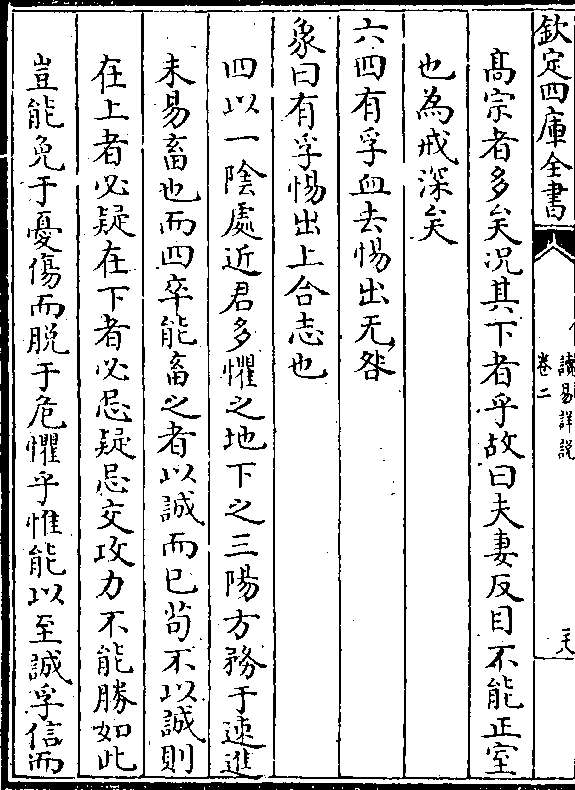 欽定四庫全書
讀易詳說
卷二
高宗者多矣况其下者乎故曰夫妻反目不能正室
也為戒深矣
六四有孚血去惕出无咎
象曰有孚惕出上合志也
四以一陰處近君多懼之地下之三陽方務于速進
未易畜也而四卒能畜之者以誠而已苟不以誠則
在上者必疑在下者必忌疑忌交攻力不能勝如此
豈能免于憂傷而脱于危懼乎惟能以至誠孚信而